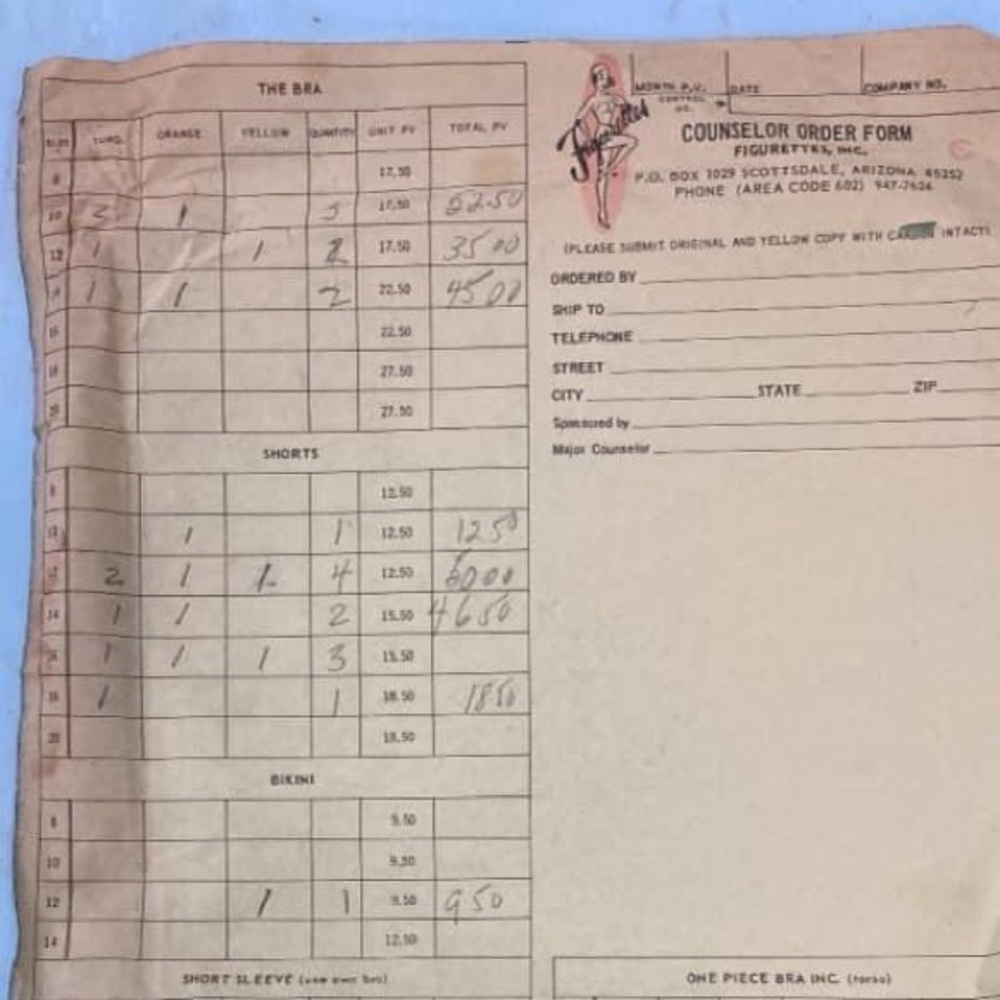 THE BRA
SIZE TURQ. ORANGE YELLOW QUANTITY UNIT PV TOTAL PV
8 17.50
10 3 1 3 17.50 52.50
12 1 1 2 17.50 35 00
14 1 1 2 22.50 45 00
16 22.50
18 27.50
20 27.50
SHORTS
8 12.50
10 1 1 12.50 12 50
12 2 1 1 4 12.50 50 00
14 1 1 2 15.50 46 50
16 1 1 1 3 15.50
18 1 1 18.50 18 50
20 18.50
BIKINI
8 9.50
10 9.50
12 1 1 9.50 9 50
14 12.50
SHORT SLEEVE (use own bra)
MONTH P.V. DATE COMPANY NO.
CONTROL NO.
Figurettes
COUNSELOR ORDER FORM
FIGURETTES, INC.
P.O. BOX 1029 SCOTTSDALE, ARIZONA 85252
PHONE (AREA CODE 602) 947-7624
(PLEASE SUBMIT ORIGINAL AND YELLOW COPY WITH CARBON INTACT)
ORDERED BY
SHIP TO
TELEPHONE
STREET
CITY STATE ZIP
Sponsored by
Major Counselor
ONE PIECE BRA INC. (torso)